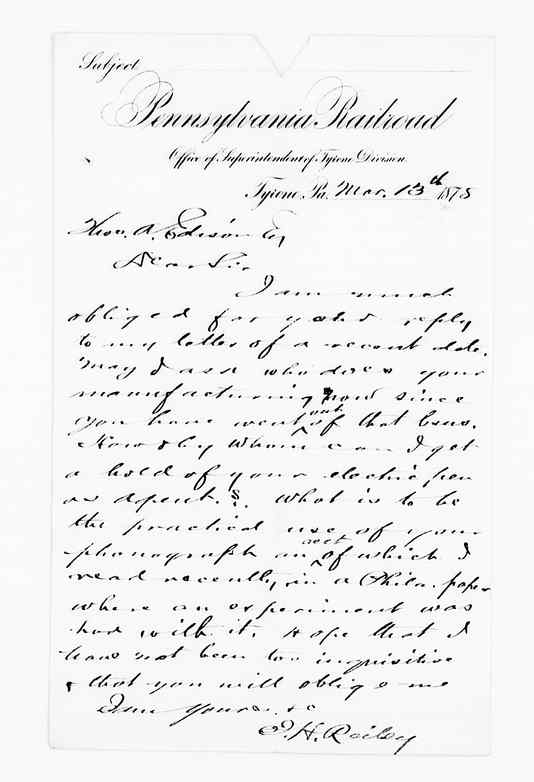 Subject
Pennsylvania Railroad
Office of Superintendent of Tyrone Division
Tyrone, Pa. Mar. 13th 1878
Thos. A. Edison Esq
Dear Sir,
I am much
obliged for your reply
to my letter of a recent date.
May I ask who does your
manufacturing now since
you have went out of that busn.
How & by whom can I get
a hold of your electric pen
as agent.? What is to be
the practical use of your
phonograph an acct of which I
read recently, in a Phila. paper
where an experiment was
had with it. Hope that I
have not been too inquisitive
& that you will oblige me
I am yours &c
P. H. Reiley